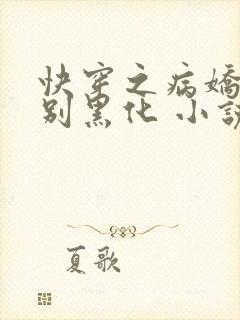 快穿之病娇
别黑化 小说
夏歌